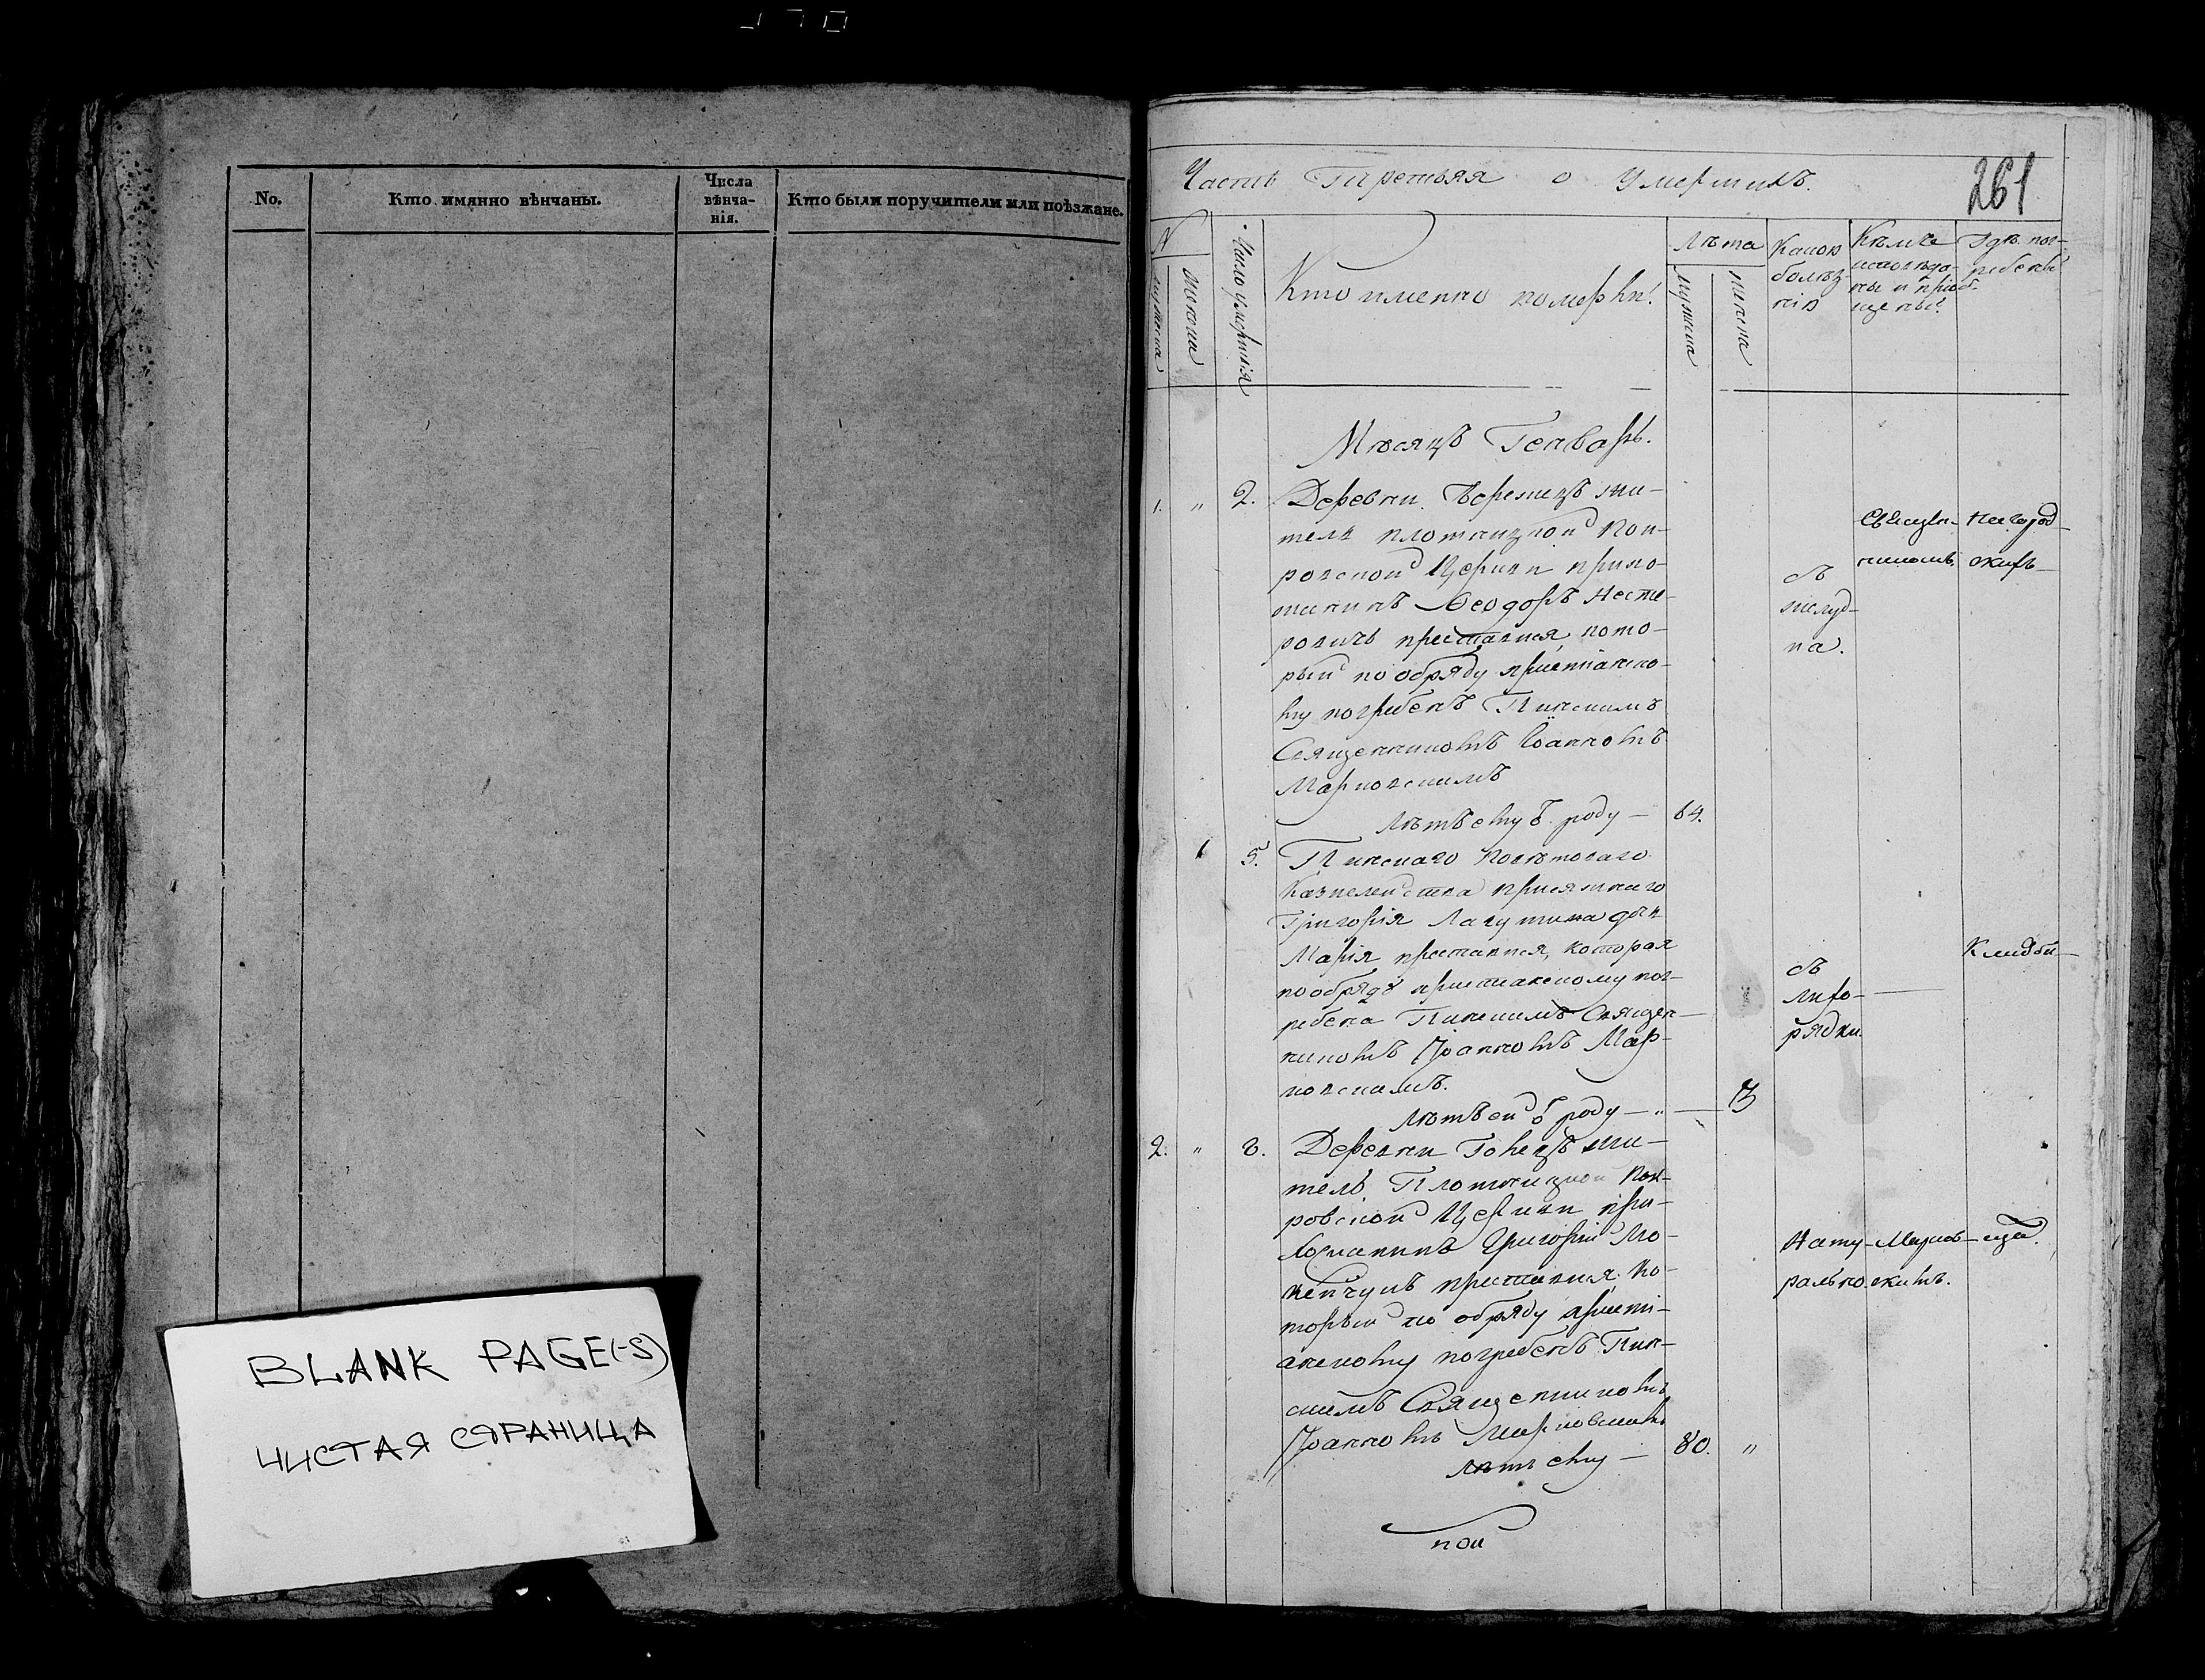 No.
Кто имянно вѣнчаны.
Числа
вѣнча-
нія.
Кто были поручители или поѣзжане.
BLANK PAGE(-S)
ЧИСТАЯ СТРАНИЦА
Часть Третьяя о Умершихъ.
261
N
мужеска
женска
Число умертвія
Кто именно померли
Лѣта
мужеска
женска
Какою
болѣз-
нію
Кѣмъ
исповѣдо-
ны и приоб-
щены
Гдѣ пог-
ребены
Мѣсяцъ Генварь.
1. " 2. Деревни жи-
тель плотницкой Пок-
ровской Церкви прихо-
жанинъ Ѳеодоръ Несте-
ровичь преставися, кото-
рый по обряду христіанско-
му погребенъ Пинскимъ
Священникомъ Іоанномъ
Марковскимъ
Лѣтъ ему ѿ роду — 64.
съ
желуд-
ка.
Священ-
никомъ
1 5. Пинскаго Повѣтоваго
Казначейства присяжнаго
Григорія Лагутина дочь
Марія преставися, которая
по обряду христианскому пог-
ребена Пинскимъ Священ-
никомъ Іоанномъ Мар-
ковскимъ.
Лѣтъ ей ѿ роду — " — 3
съ
лихо-
рядки.
Кладби-
2. " 8. Деревни жи-
тель Плотницкой Пок-
ровской Церкви при-
хожанинъ Григорий
преставися ко-
торый по обряду христі-
анскому погребенъ Пин-
скимъ Священникомъ
Іоанномъ Марковскимъ
Лѣтъ ему — 80. "
Нату-
рально.
Марков-
скимъ.
ща.